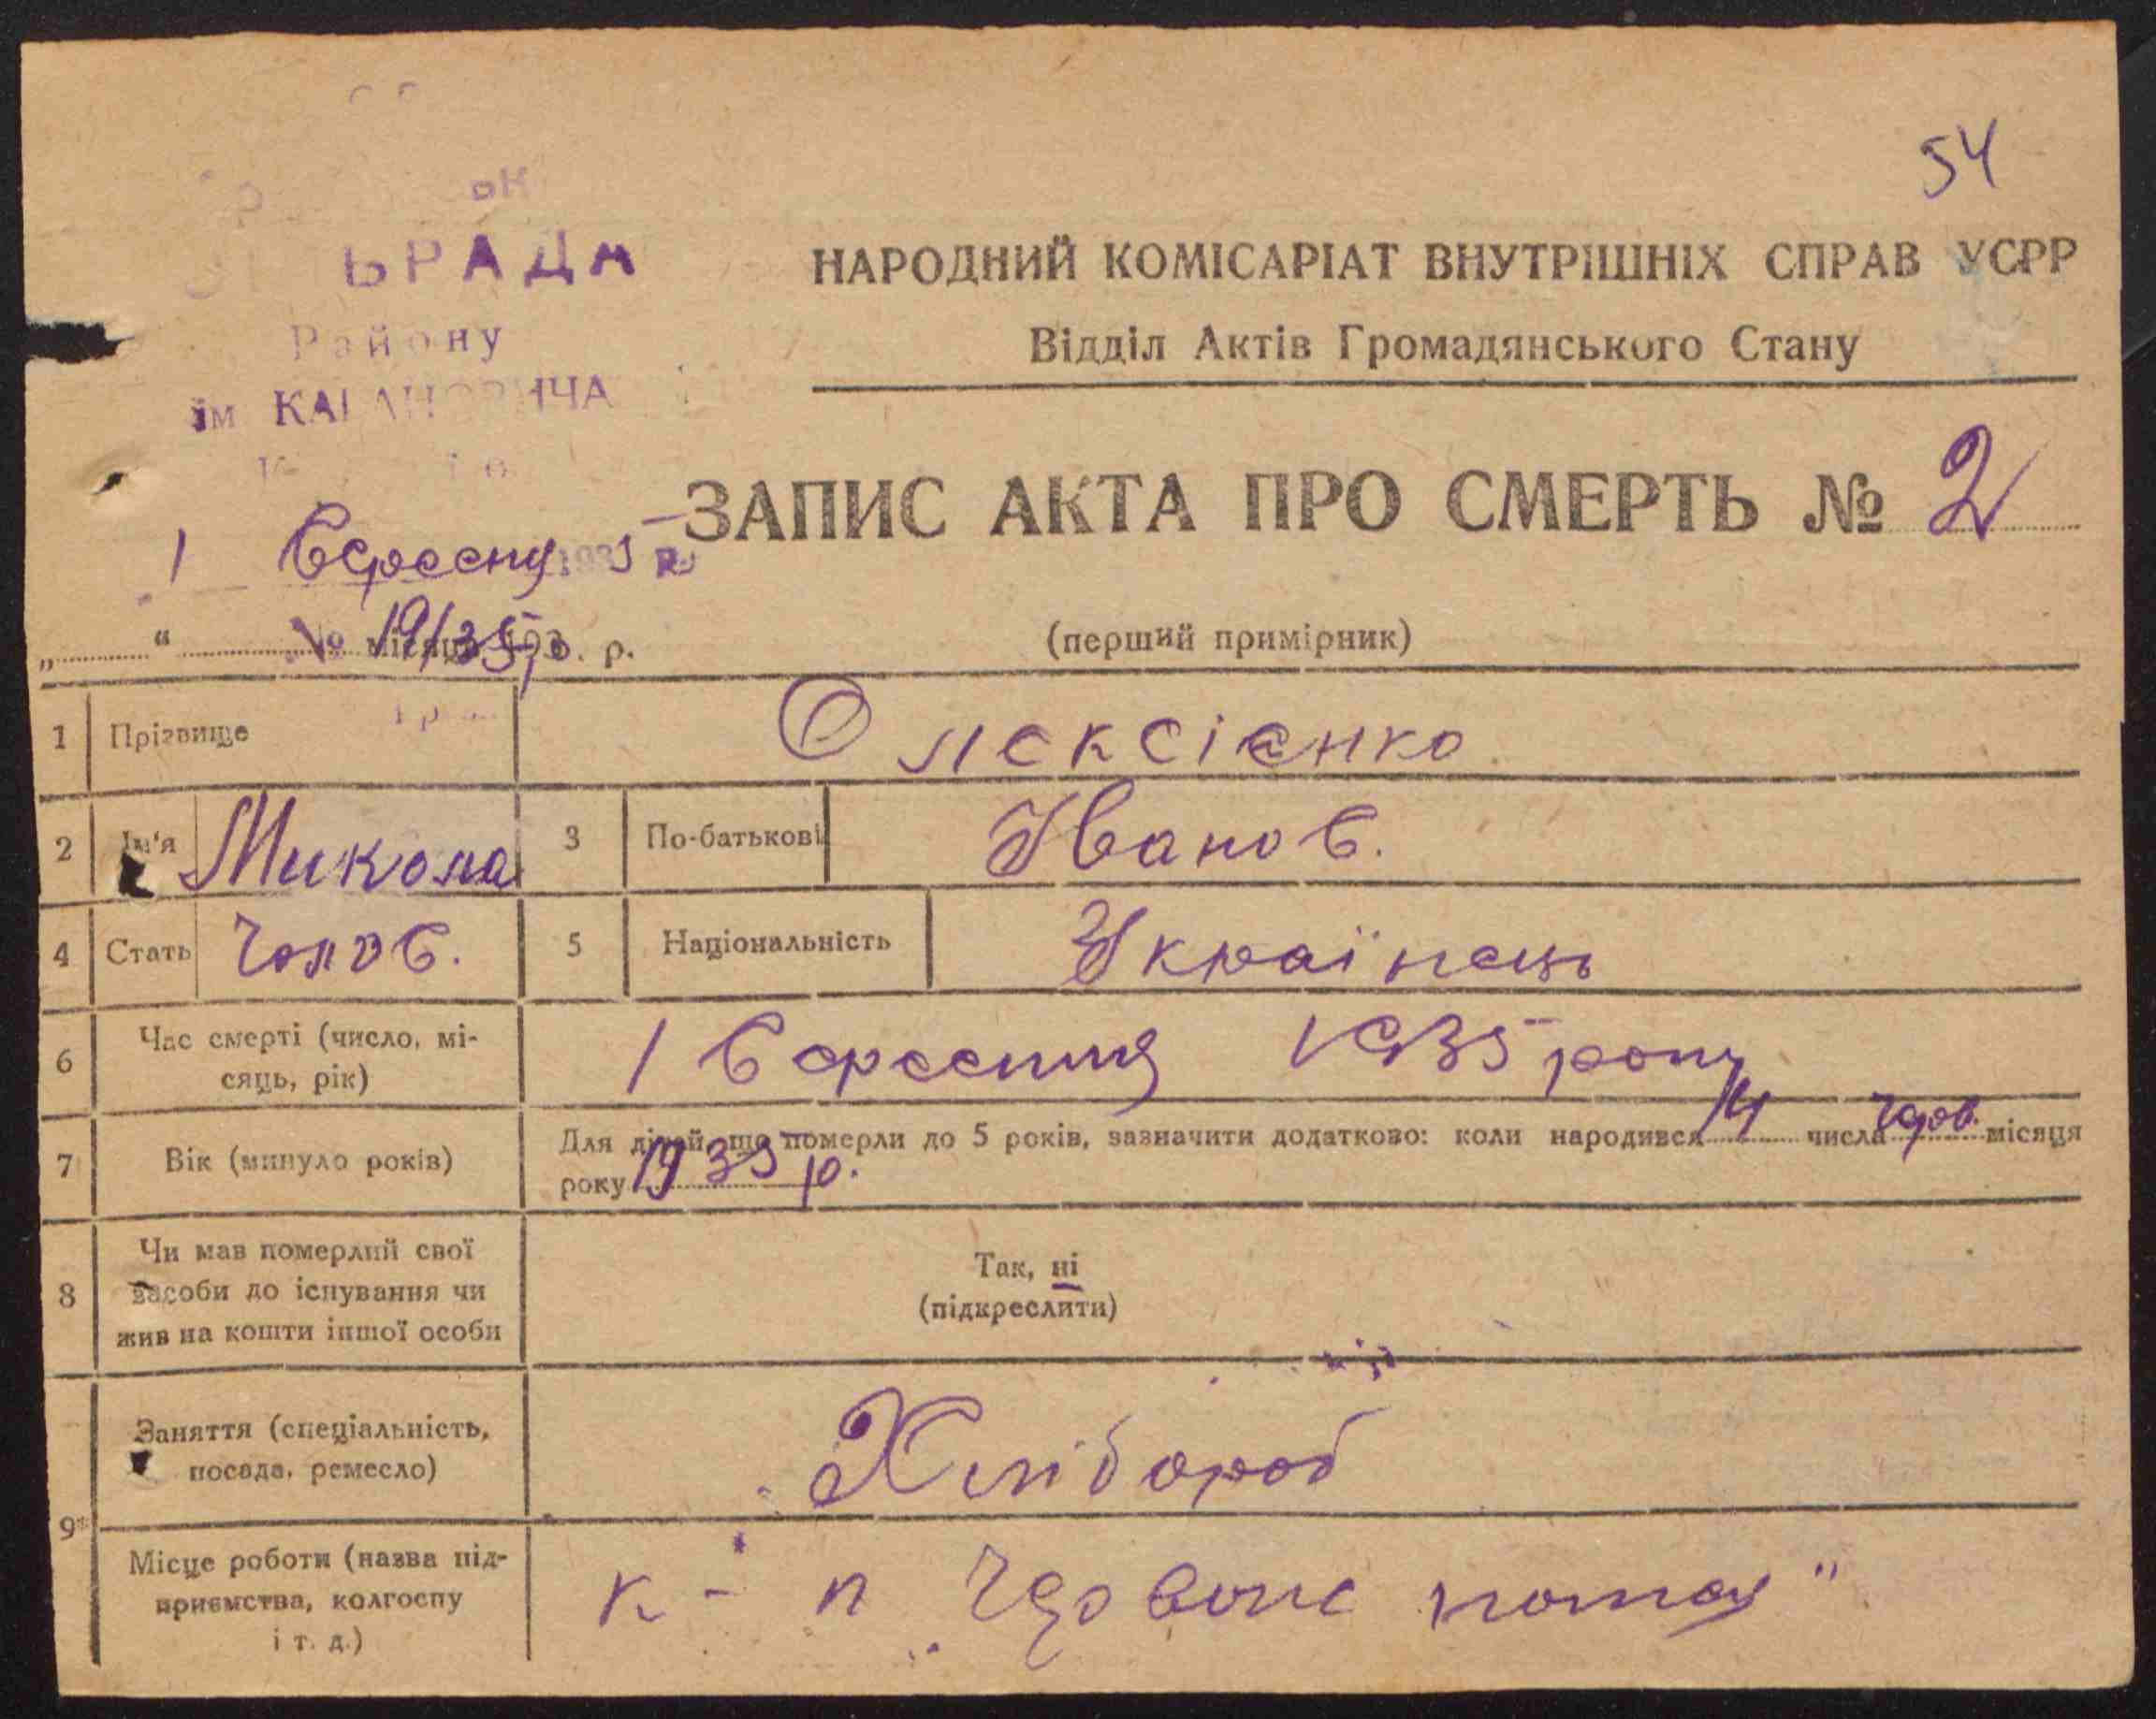 54
ЬРАДА
Району
ім КАГАНОВИЧА
НАРОДНИЙ КОМІСАРІАТ ВНУТРІШНІХ СПРАВ УСРР
Відділ Актів Громадянського Стану
ЗАПИС АКТА ПРО СМЕРТЬ № 2
1 Вересня 1935 р
„ “ № 19/35 місяця 193 р.
(перший примірник)
1 Прізвище Олексієнко
2 Ім'я Микола 3 По-батькові Іванов.
4 Стать Чолов. 5 Національність Українець
6 Час смерті (число, мі-
сяць, рік) 1 Вересення 1935 року
7 Вік (минуло років) Для дітей, що померли до 5 років, зазначити додатково: коли народився 14 числа Черв. місяця
року 1935 р.
8 Чи мав померлий свої
засоби до існування чи
жив на кошти іншої особи
Так, ні
(підкреслити)
9* Заняття (спеціальність,
посада, ремесло) Хлібороб
Місце роботи (назва під-
приємства, колгоспу
і т. д.) к-п „Червоне"